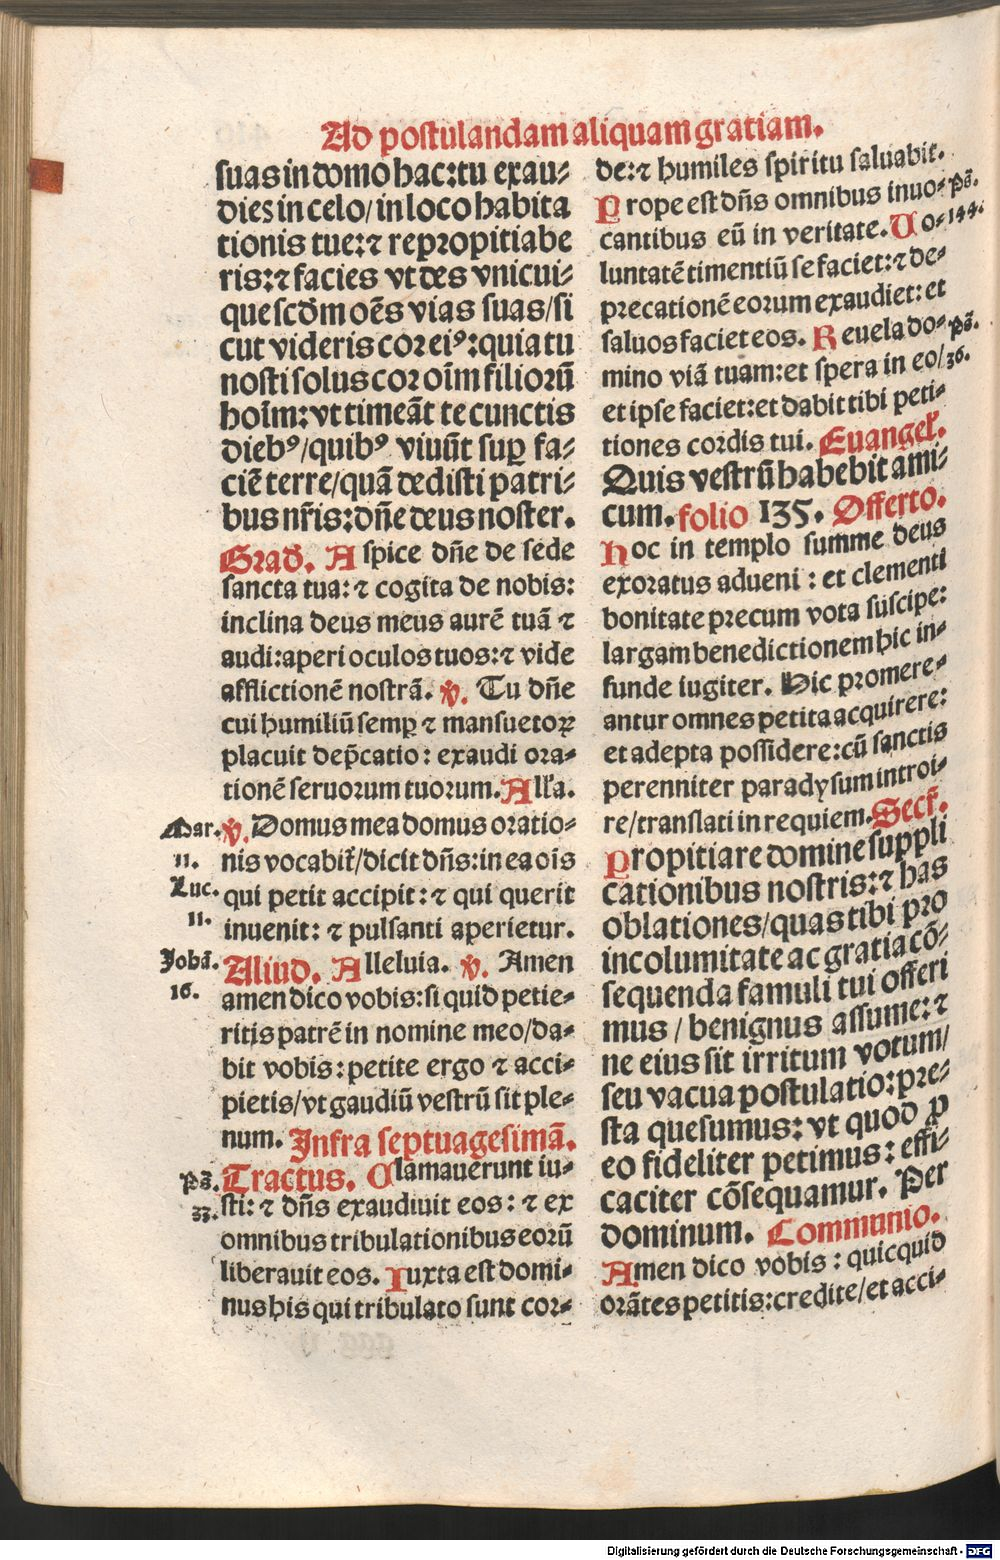 Ad postulandam aliquam gratiam.
suas in domo hac:tu exau⸗
dies in celo/in loco habita
tionis tue:⁊ repropitiabe
ris:⁊ facies vt des vnicui⸗
que scd̄m oēs vias suas/si
cut videris cor eiꝰ:quia tu
nosti solus cor oīm filiorū
hoīm:vt timeāt te cunctis
diebꝰ/quibꝰ viuūt suꝑ fa⸗
ciē terre/quā dedisti patri⸗
bus nr̄is:dn̄e deus noster.
Grad. Aspice dn̄e de sede
sancta tua:⁊ cogita de nobis:
inclina deus meus aurē tuā ⁊
audi:aperi oculos tuos:⁊ vide
afflictionē nostrā. ℣. Tu dn̄e
cui humiliū semꝑ ⁊ mansuetoꝝ
placuit dep̄catio: exaudi ora⸗
tionē seruorum tuorum. All'a.
Mar. ℣. Domus mea domus oratio⸗
11. nis vocabit̄/dicit dn̄s:in ea oīs
Luc. qui petit accipit:⁊ qui querit
11. inuenit:⁊ pulsanti aperietur.
Johā. Aliud. Alleluia. ℣. Amen
16. amen dico vobis:si quid petie⸗
ritis patrē in nomine meo/da⸗
bit vobis:petite ergo ⁊ acci⸗
pietis/vt gaudiū vestrū sit ple⸗
num. Infra septuagesimā.
Ps̄. Tractus. Clamauerunt iu⸗
33. sti:⁊ dn̄s exaudiuit eos:⁊ ex
omnibus tribulationibus eorū
liberauit eos. Iuxta est domi⸗
nus his qui tribulato sunt cor⸗
de:⁊ humiles spiritu saluabit̄.
Prope est dn̄s omnibus inuo⸗ Ps̄.
cantibus eū in veritate. Uo⸗ 144.
luntatē timentiū se faciet:⁊ de⸗
precationē eorum exaudiet:et
saluos faciet eos. Reuela do⸗ Ps̄.
mino viā tuam:et spera in eo/ 36.
et ipse faciet:et dabit tibi peti⸗
tiones cordis tui. Euangel̄.
Quis vestrū habebit ami⸗
cum. folio 135. Offerto.
Hoc in templo summe deus
exoratus adueni : et clementi
bonitate precum vota suscipe:
largam benedictionem hic in⸗
funde iugiter. Hic promere⸗
antur omnes petita acquirere:
et adepta possidere:cū sanctis
perenniter paradysum introi⸗
re/translati in requiem. Secr̄.
Propitiare domine suppli
cationibus nostris:⁊ has
oblationes/quas tibi pro
incolumitate ac gratia cō⸗
sequenda famuli tui offeri
mus / benignus assume:⁊
ne eius sit irritum votum/
seu vacua postulatio:pre⸗
sta quesumus: vt quod ꝑ
eo fideliter petimus: effi⸗
caciter cōsequamur. Per
dominum. Communio.
Amen dico vobis : quicquid
orātes petitis:credite/et acci⸗
Digitalisierung gefördert durch die Deutsche Forschungsgemeinschaft - DFG